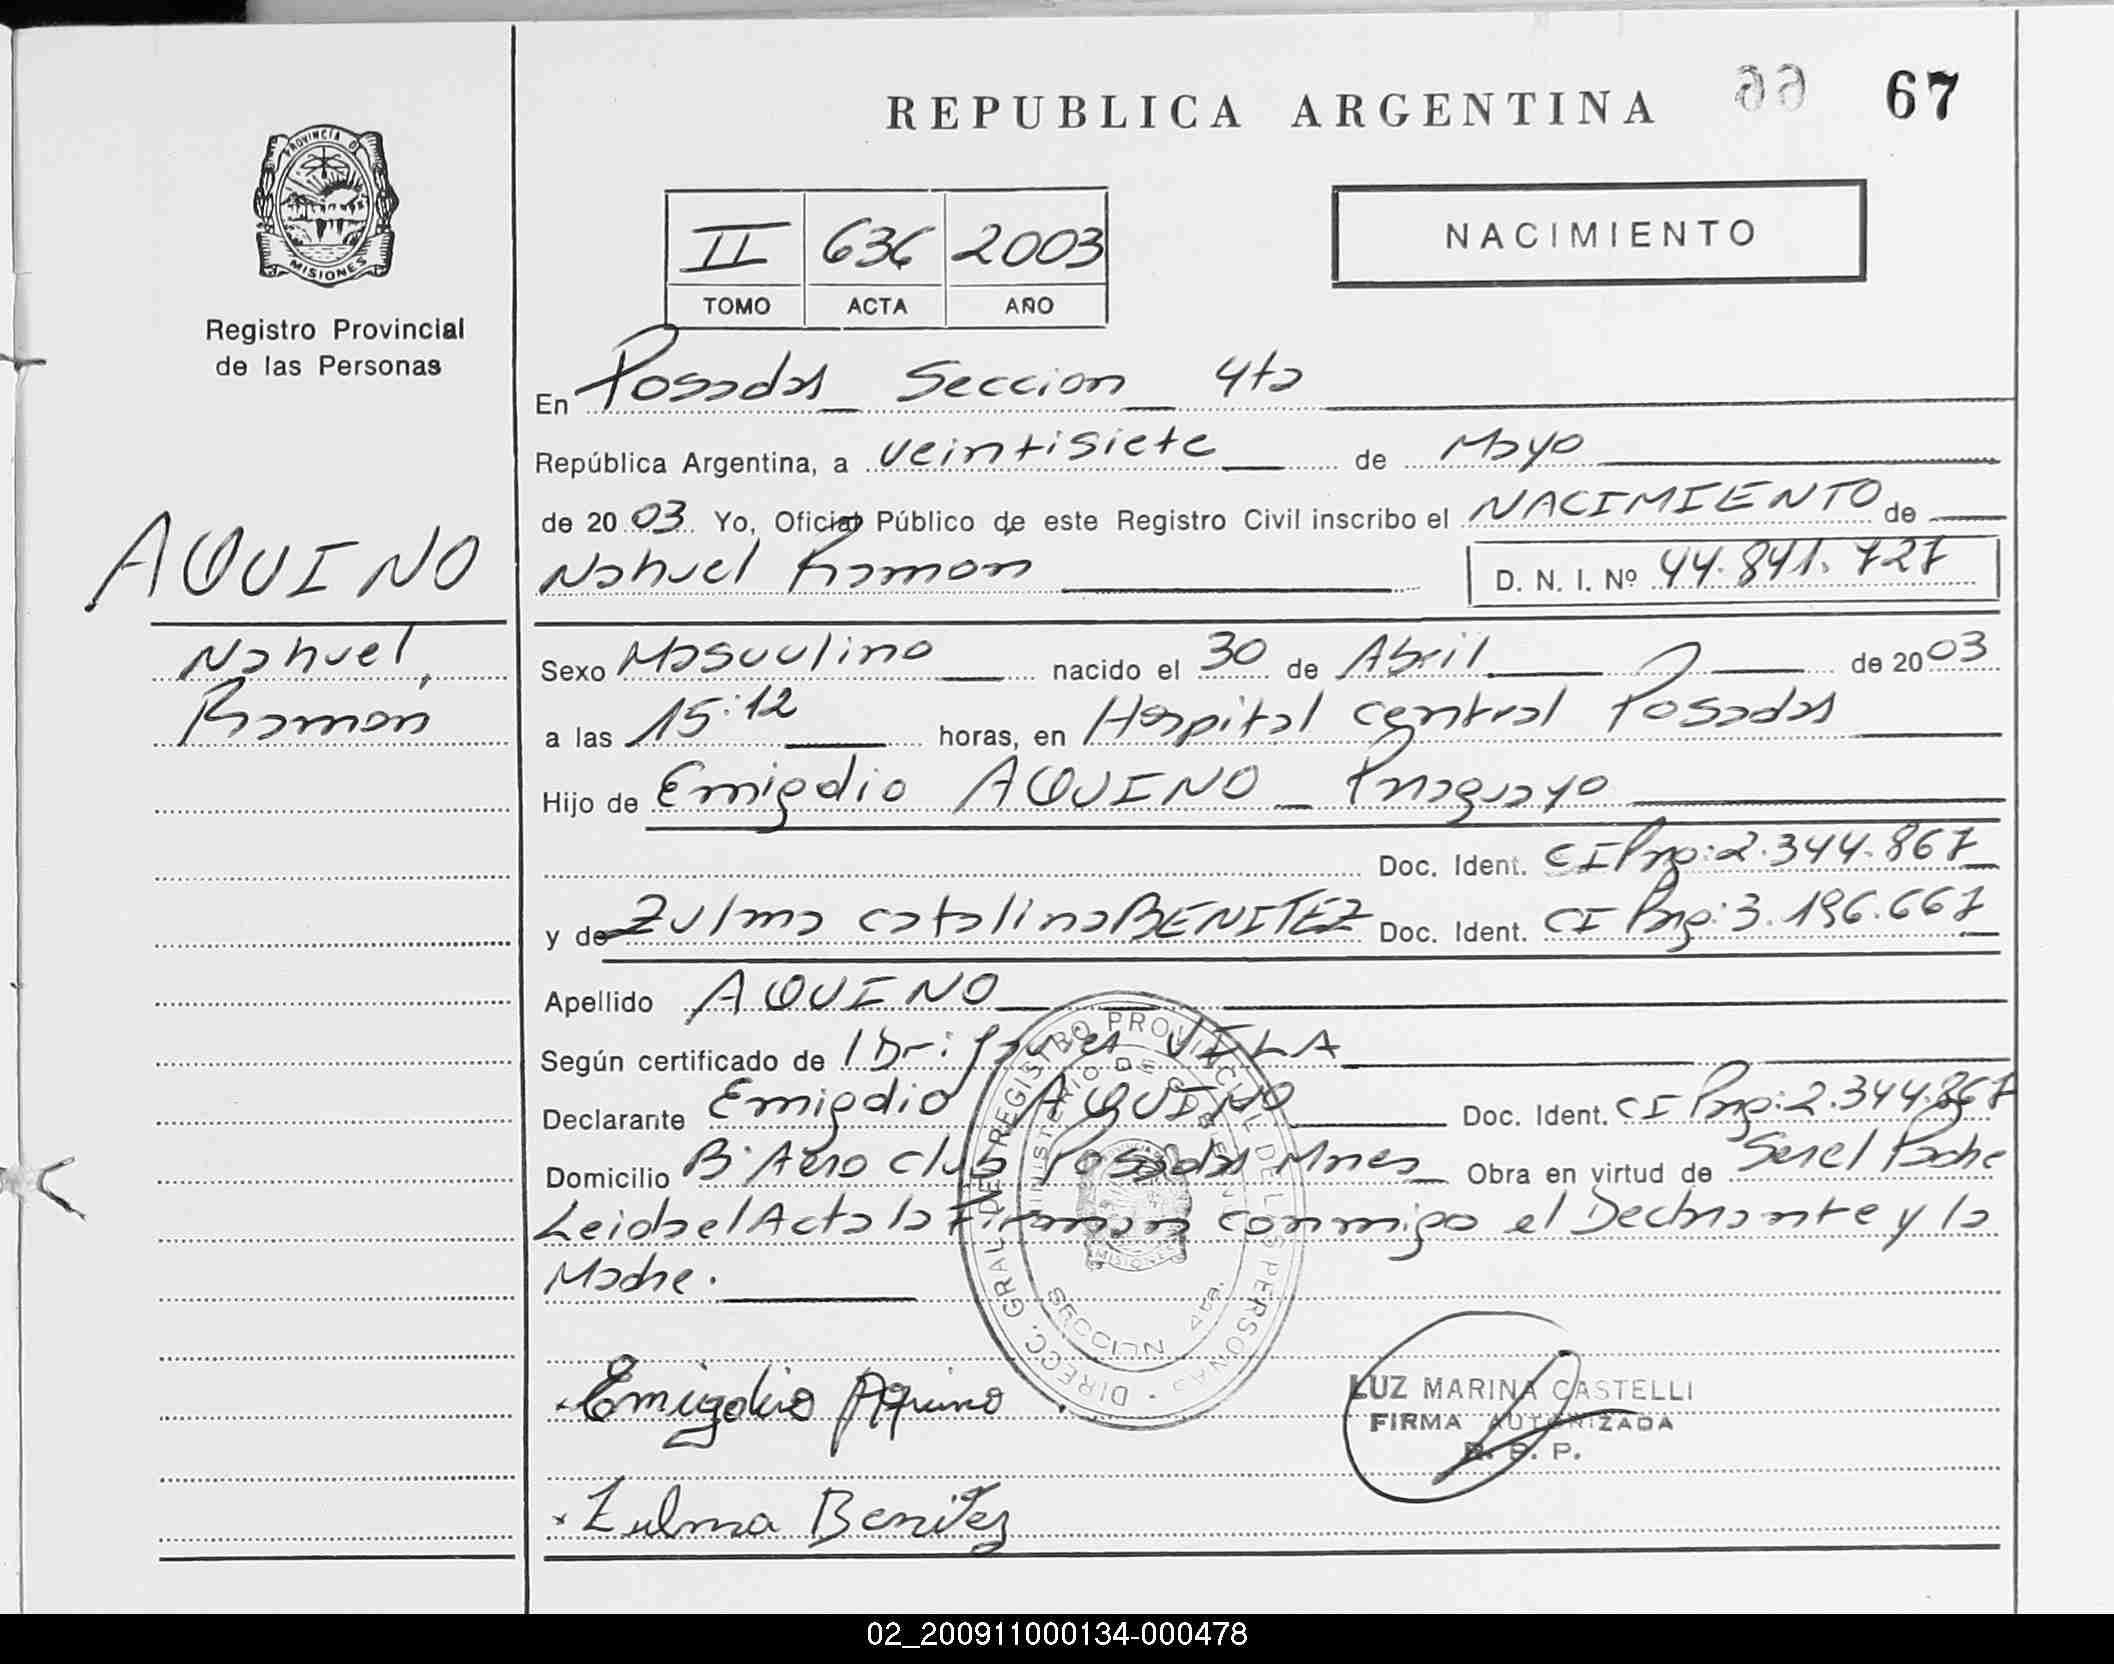 REPUBLICA ARGENTINA 66 67
PROVINCIA D MISIONES
Registro Provincial
de las Personas
II 636 2003
TOMO ACTA AÑO
NACIMIENTO
En Posadas Seccion 4ta
República Argentina, a veintisiete de Mayo
de 2003 Yo, Oficial Público de este Registro Civil inscribo el NACIMIENTO de
Nahuel Ramon D. N. I. Nº 44.841.727
AQUINO
Nahuel,
Ramón
Sexo Masculino nacido el 30 de Abril de 2003
a las 15:12 horas, en Hospital Central Posadas
Hijo de Emigdio AQUINO Paraguayo
Doc. Ident. CI Prg: 2.344.867
y de Zulma Catalina BENITEZ Doc. Ident. CI Prg: 3.196.667
Apellido AQUINO
Según certificado de Dr: VILA
Declarante Emigdio AQUINO Doc. Ident. CI Prg: 2.344.867
Domicilio B° Aero Club Posadas Mnes Obra en virtud de Ser el Padre
Leida el Acta la Firman conmigo el Declarante y la
Madre.
DIRECC. GRAL. DE REGISTRO PROVINCIAL DE LAS PERSONAS
MINISTERIO DE GOBIERNO
MISIONES
SECCION 4ta.
Emigdio Aquino
LUZ MARINA CASTELLI
FIRMA AUTORIZADA
R. P. P.
Zulma Benitez
02_200911000134-000478